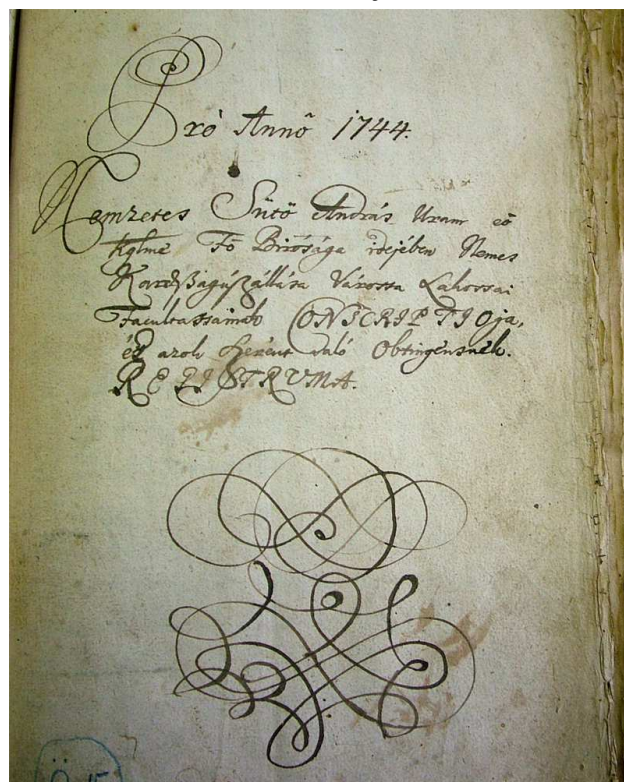 Pró Annô 1744.
Nemzetes Sütö András Uram eö
kglme Fö Birósága idejében Nemes
Kardszagúszállása Várossa Lakossai
Facultassainak CONSCRIPTIOja,
és azok szerént való Obtingensnek.
REGISTRUMA.